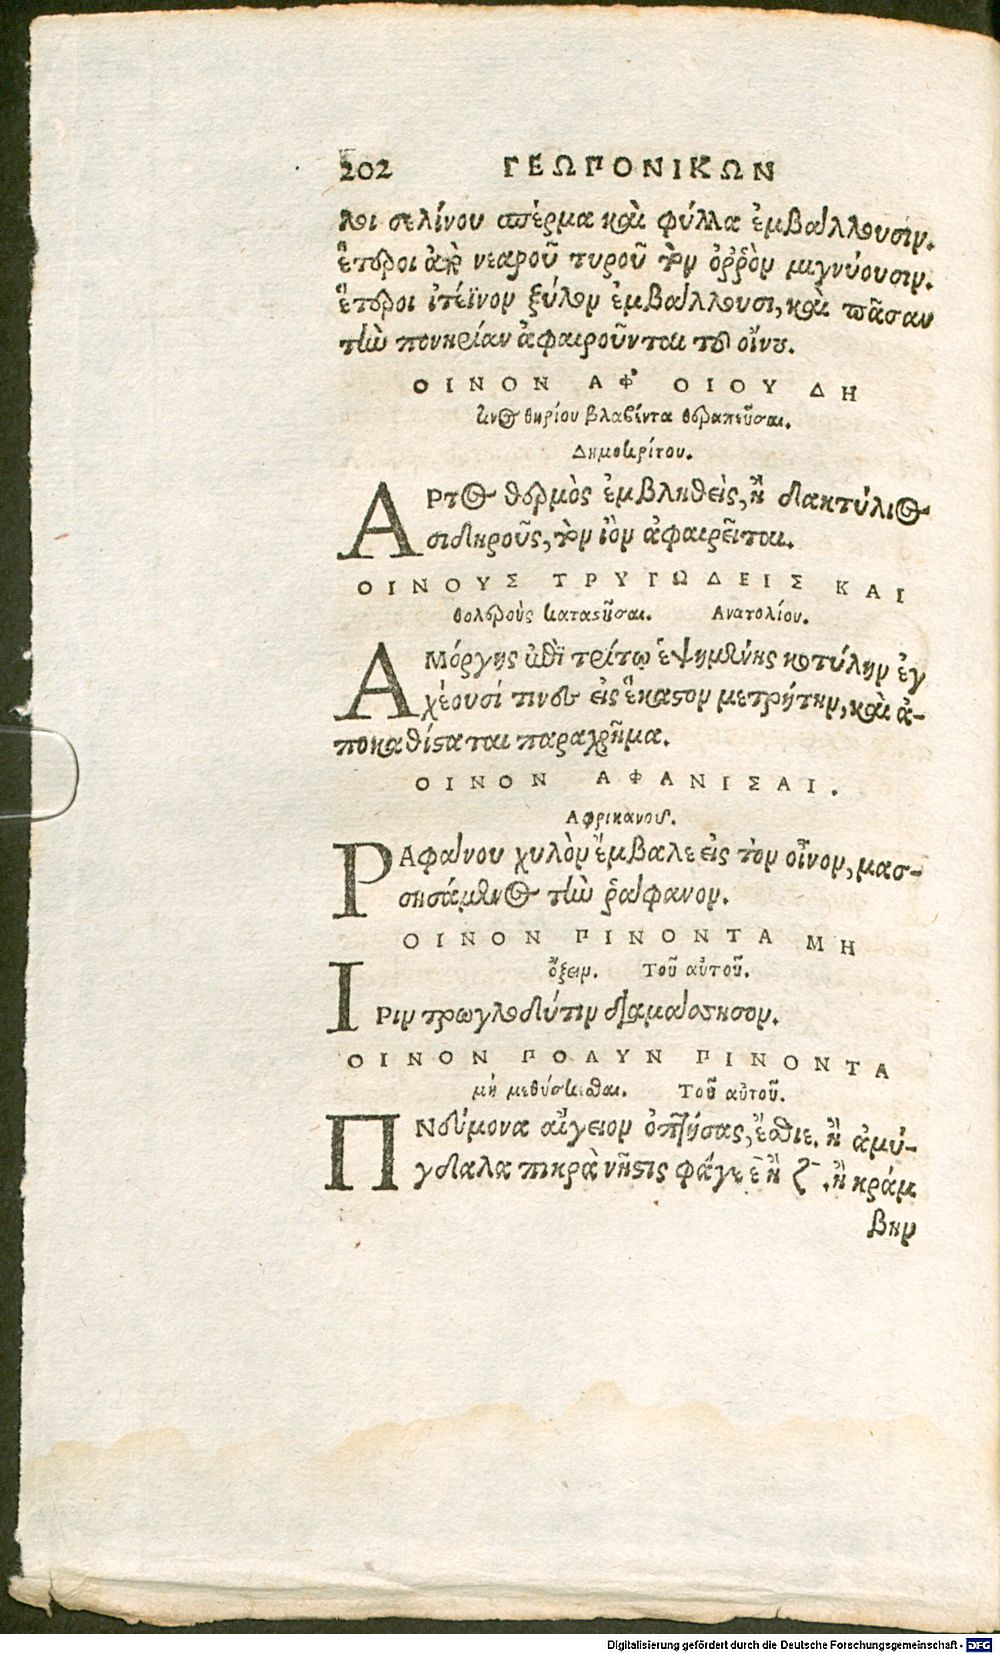 202 ΓΕΩΠΟΝΙΚΩΝ
λοι σελίνου σπέρμα καὶ φύλλα ἐμβάλλουσιν.
ἕτεροι ἀπὸ νεαροῦ τυροῦ τὸν ὀῤῥὸν μιγνύουσιν.
ἕτεροι ἰτέϊνον ξύλον ἐμβάλλουσι, καὶ πᾶσαν
τὴν πονηρίαν ἀφαιροῦνται τοῦ οἴνου.
ΟΙΝΟΝ ΑΦ' ΟΙΟΥ ΔΗ
κνος θηρίου βλαβέντα θεραπεῦσαι.
Δημοκρίτου.
ΑΡτος θερμὸς ἐμβληθεὶς, ἢ δακτύλιος
σιδηροῦς, τὸν ἰὸν ἀφαιρεῖται.
ΟΙΝΟΥΣ ΤΡΥΓΩΔΕΙΣ ΚΑΙ
θολεροὺς καταστῆσαι. Ανατολίου.
ΑΜόργης ἐπὶ τρίτῳ ἑψημένης κοτύλην ἐγ
χέουσί τινες εἰς ἕκαστον μετρήτην, καὶ ἀ-
ποκαθίσταται παραχρῆμα.
ΟΙΝΟΝ ΑΦΑΝΙΣΑΙ.
Αφρικανοῦ.
ΡΑφάνου χυλὸν ἔμβαλε εἰς τὸν οἶνον, μασ-
σησάμενος τὴν ῥάφανον.
ΟΙΝΟΝ ΠΙΝΟΝΤΑ ΜΗ
ὄξειν. Τοῦ αὐτοῦ.
ΙΡιν τρωγλοδύτιν διαμάσησον.
ΟΙΝΟΝ ΠΟΛΥΝ ΠΙΝΟΝΤΑ
μὴ μεθύσκεσθαι. Τοῦ αὐτοῦ.
ΠΝεύμονα αἴγειον ὀπτήσας, ἔσθιε. ἢ ἀμύ-
γδαλα πικρὰ νῆστις φάγε ε ἢ ζ. ἢ κράμ
βην
Digitalisierung gefördert durch die Deutsche Forschungsgemeinschaft - DFG